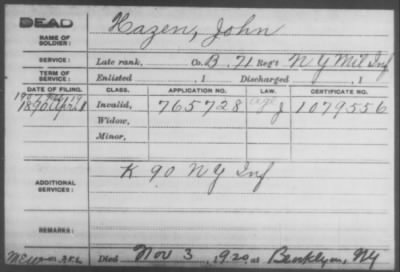 DEAD
NAME OF SOLDIER:
Hazen, John
SERVICE:
Late rank, Co. B, 71 Reg't N Y Mil Inf
TERM OF SERVICE:
Enlisted , 1 Discharged , 1
DATE OF FILING. CLASS. APPLICATION NO. LAW. CERTIFICATE NO.
1890 April Invalid, 765728 J 1079556
Widow,
Minor,
ADDITIONAL SERVICES:
K 90 N Y Inf
REMARKS:
Died Nov 3, 1920 at Brooklyn, NY